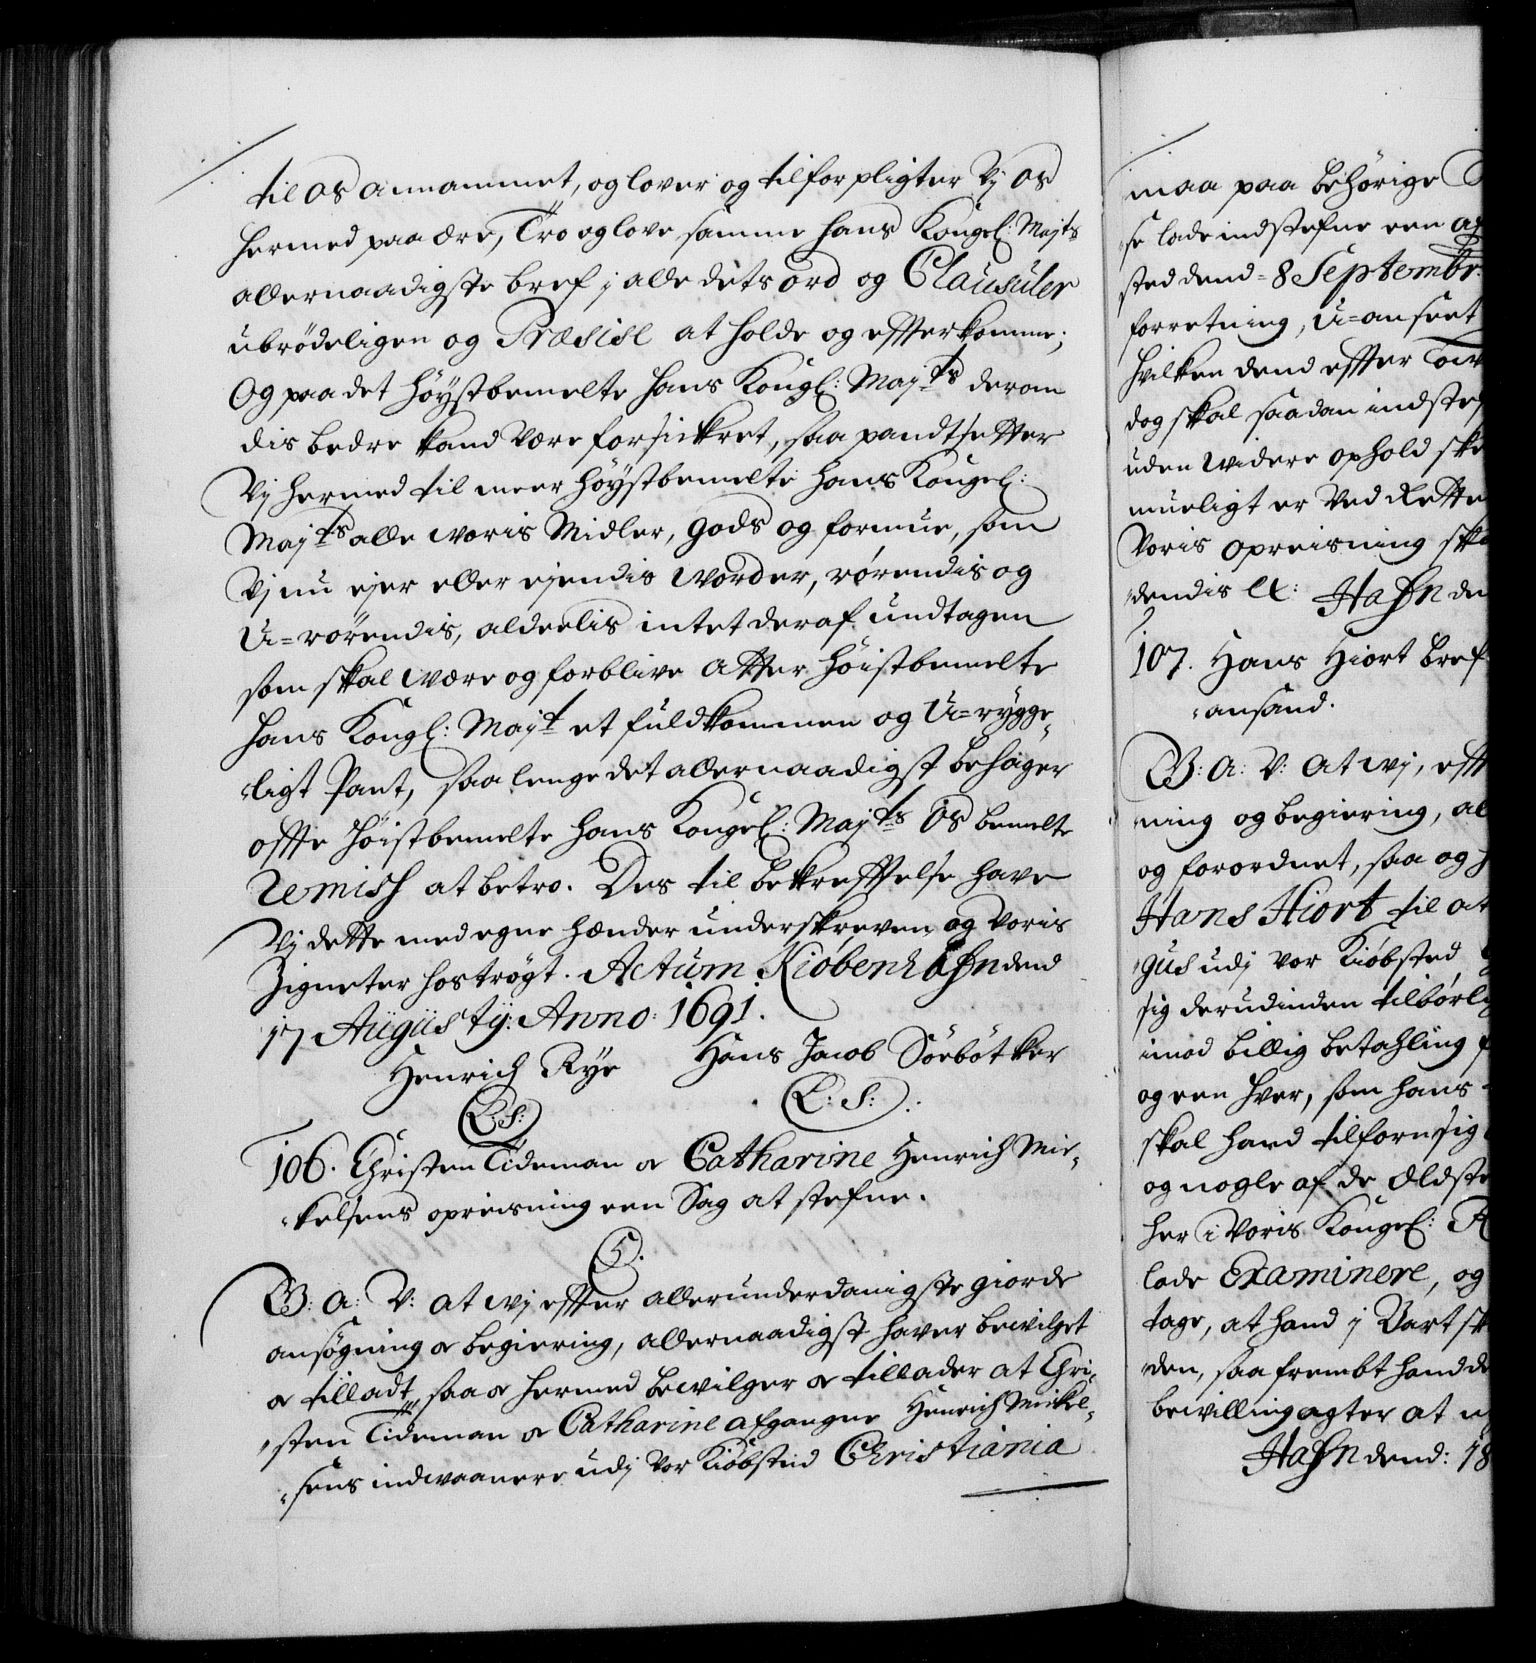 til os annammet, og lover og tilforpligter Vj os
hermed paa ære, Tro og love, samme hans Kongel: Majts
allernaadigste bref j alle dets ord og Clausuler
ubrødeligen og Præsise at holde og effterkomme;
Og paa det høystbemelte hans Kongl: Majts derom
dis bedre kand være forsickret, saa pandtsetter
Vj hermed til meer høystbemelte hans Kongel:
Majts alle woris Midler, gods og formue, som
Vj nu ejer eller ejendis worder, rørendis og
U=rørendis, aldeelis intet deraf undtagen
som skal være og forblive atter høistbemelte
hans Kongl: Majt et fuldkommen og U=rygge¬
ligt Pant, saa lenge det allernaadigst behager
offte høistbemelte hans Kongel: Majts os bemelte
Remiss at betro. Des til bekrefftelse have
Vj dette med egne hænder underskreven og voris
Zigneter hostrøgt. Actum Kiøbenhafn dend
17 Augusty: Anno: 1691.
Henrich Rÿe Hans Jacob Sørbøtker
L: S: L: S:
106. Christen Tideman & Catharine Henrich Mic¬
kelsens opreisning een Sag at stefne.
5.
G: A: V: at wj effter allerunderdanigste giorde
ansøgning & begiering, allernaadigst haver bevilget
& tilladt, saa & hermed bewilger & tillader at Chri¬
sten Tideman & Catharine afgangne Henrich Mickel¬
sens indvaanere udj vor Kiøbsted Christiania
maa paa behørige
se lade indstefne een
sted dend=8 Septembr:
forretning, U=anseet
hvilken dend effter
dog skal saadan indstef
uden widere ophold ske
mueligt er ved Rette
Voris opreisning ska
dendis &: Hafn de
107. Hans Hiort bref
ansand.
G: A: V: at wj, efft
ning og begiering, al
og forordnet, saa og h
Hans Hiort til at
gus udj vor Kiøbsted
sig derudinden tilbørli
imod billig betahling
og een hver, som hans
skal hand tilforn sig
og nogle af de Eldste
her i voris Kongel:
lade Examinere, og
tage, at hand j Vart sk
den, saa frembt hand de
bevilling agter at n
Hafn dend: 18